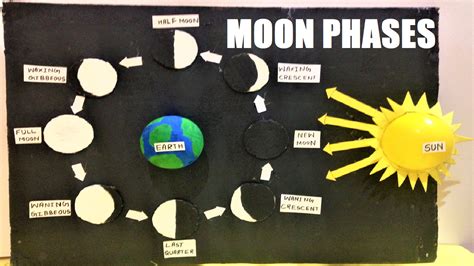 MOON PHASES
HALF MOON
WAXING
GIBBEOUS
WAXING
CRESCENT
FULL
MOON
EARTH
NEW
MOON
SUN
WANING
GIBBEOUS
WANING
CRESCENT
LAST
QUARTER